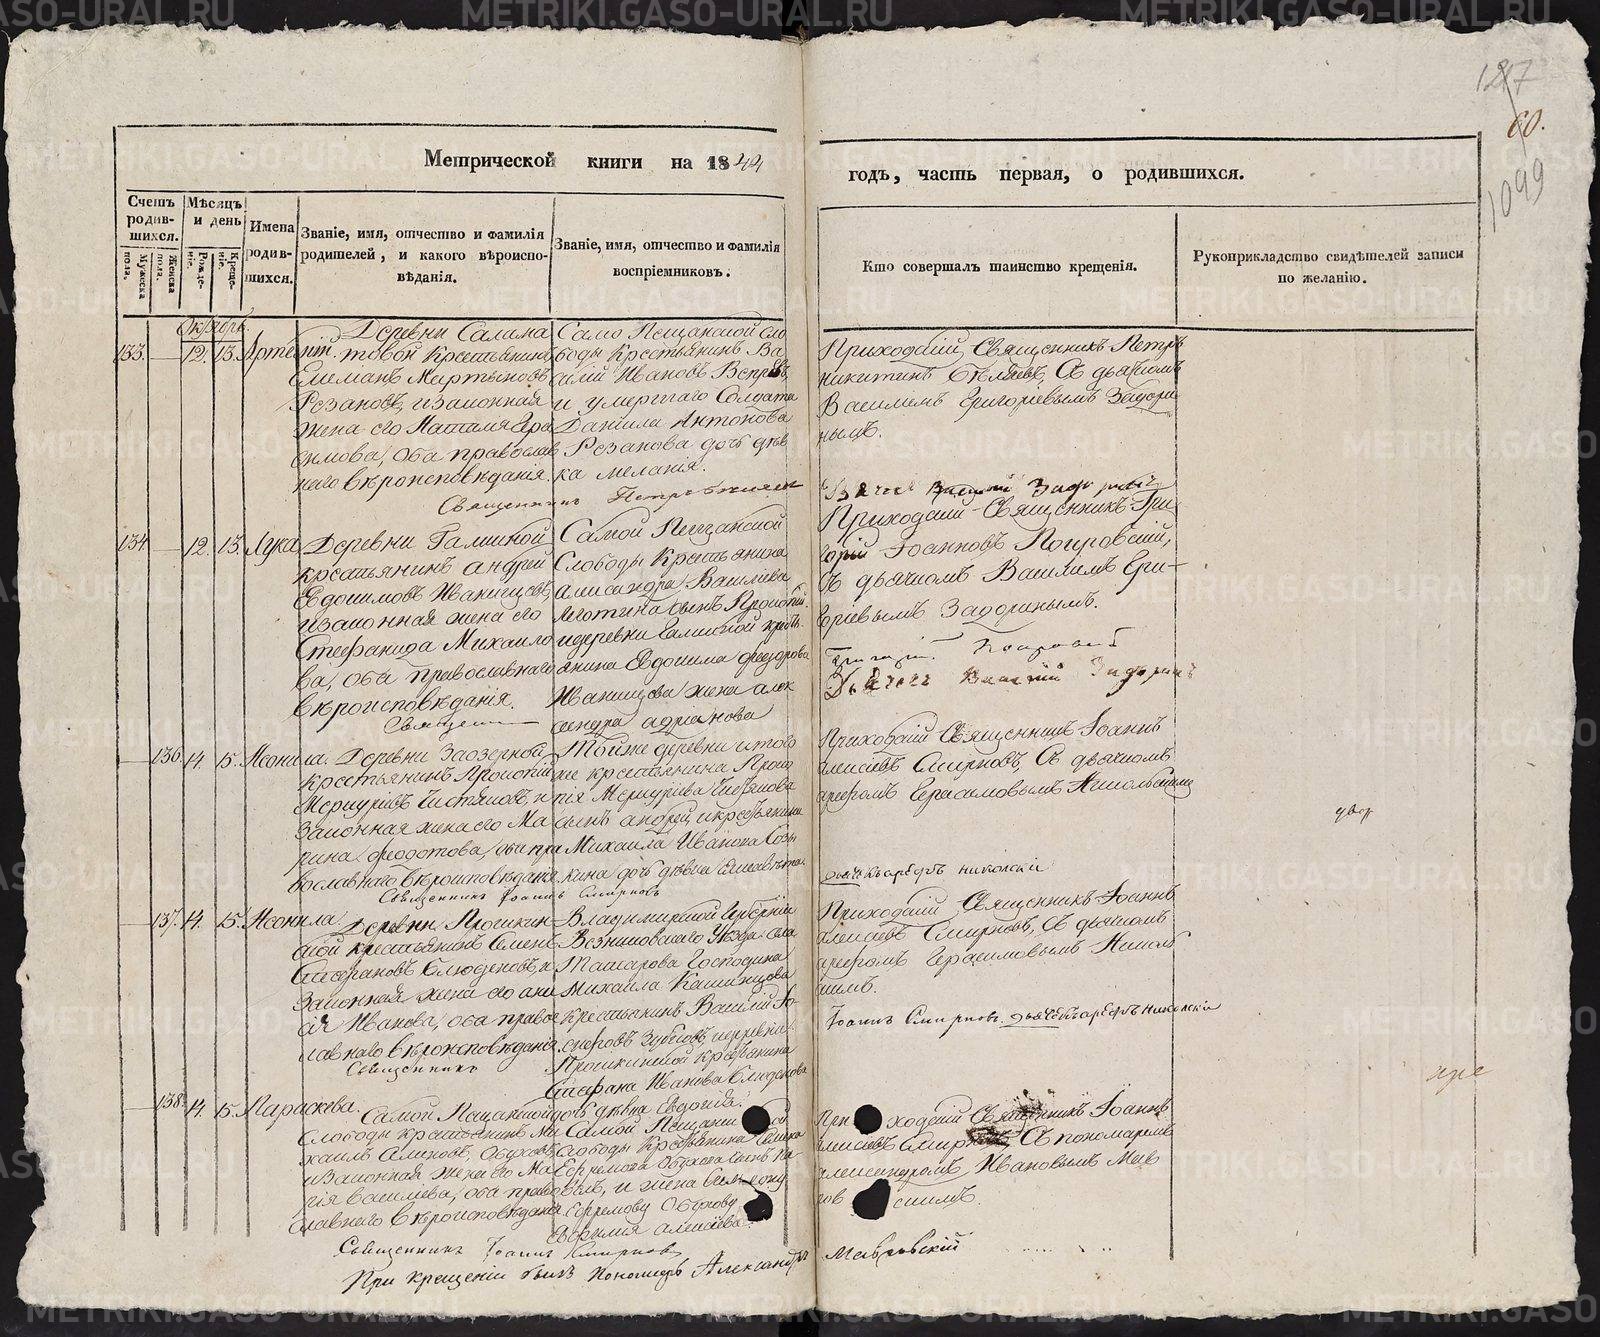 187
60.
1099
Метрической книги на 1844
годъ, часть первая, о родившихся.
Счетъ родившихся.
Мужеска пола.
Женска пола.
Мѣсяцъ и день
Рожденіе.
Крещеніе.
Имена родившихся.
Званіе, имя, отчество и фамилія родителей, и какого вѣроисповѣданія.
Званіе, имя, отчество и фамилія воспріемниковъ.
Кто совершалъ таинство крещенія.
Рукоприкладство свидѣтелей записи по желанію.
Октябрь.
133. 12. 13. Артемій.
Деревни Салама
товой Крестьянинъ
Мартыновъ
Резановъ, и законная
жена его Наталья Гра
симова, оба православ
наго вѣроисповѣданія.
Само Пещанской сло
боды Крестьянинъ Ва
силій Ивановъ
и умершаго Солдата
Данила Антонова
Резанова дочь дѣв
ка Меланія.
Приходскій Священникъ Петръ
Никитинъ Бѣляевъ, съ дьячкомъ
Василіемъ Григорьевымъ Задори
нымъ.
Священникъ Петръ Бѣляевъ
Дьячекъ Василій Задоринъ
134 12. 13. Лука
Деревни Галкиной
крестьянинъ Андрей
Евдокимовъ Иванищевъ,
и законная жена его
Стефанида Михайло
ва, оба православнаго
вѣроисповѣданія.
Самой Пещанской
Слободы Крестьянина
Александра Василіева
сынъ Прокопій
и деревни Галкиной крестья
янина Евдокима Феодорова
Иванищева жена Алек
сандра Адріанова
Приходскій Священникъ Гри
горій Іоанновъ Покровскій,
съ дьячкомъ Василіемъ Гри-
горіевымъ Задоринымъ.
Священникъ Григорій Покровскій
Дьячекъ Василій Задоринъ
136. 14. 15. Неонила.
Деревни Заозерной
крестьянинъ Прокопій
Меркурьевъ Чистяковъ, и
законная жена его Ма
рина Феодотова, оба пра
вославнаго вѣроисповѣданія
Той же деревни и того
же крестьянина Проко
пія Меркуріева Чистякова
сынъ Андрей, и крестьянина
Михаила Иванова Созы
кина дочь дѣвка Елисавета.
Приходскій Священникъ Іоаннъ
Алексѣевъ Смирновъ, съ дьячкомъ
Арефомъ Герасимовымъ Никольскимъ
Священникъ Іоаннъ Смирновъ
дьячекъ Арефъ Никольскій
137. 14. 15. Неонила
Деревни Прошкин
ской крестьянинъ Семенъ
Стефановъ Блюденовъ, и
законная жена его Ани
сія Иванова, оба правос
лавнаго вѣроисповѣданія
Владимирской Губерніи
Вязниковскаго Уѣзда села
Господина
Михаила
крестьянинъ Василій Іо
сифовъ Зубковъ, и деревни
Прошкинской крестьянина
Стефана Иванова Блюденова
дочь дѣвка Евдокія.
Приходскій Священникъ Іоаннъ
Алексѣевъ Смирновъ, съ дьячкомъ
Арефомъ Герасимовымъ Николь
скимъ.
Священникъ Іоаннъ Смирновъ. дьячекъ Арефъ Никольскій
138. 14. 15. Параскева.
Самой Пещанской
Слободы крестьянинъ Ми
хаилъ Обуховъ,
и законная жена его Ма
рія Василіева, оба право
славнаго вѣроисповѣданія
Самой Пещанской
Слободы Крестьянина
Ефремова Обухова сынъ
и жена
Ефремову Обухову
Алексіева.
Приходскій Священникъ Іоаннъ
Алексіевъ Смирновъ, съ пономаремъ
Александромъ Ивановымъ Мав
ровскимъ
Священникъ Іоаннъ Смирновъ
При крещеніи былъ Пономарь Александръ Мавровскій